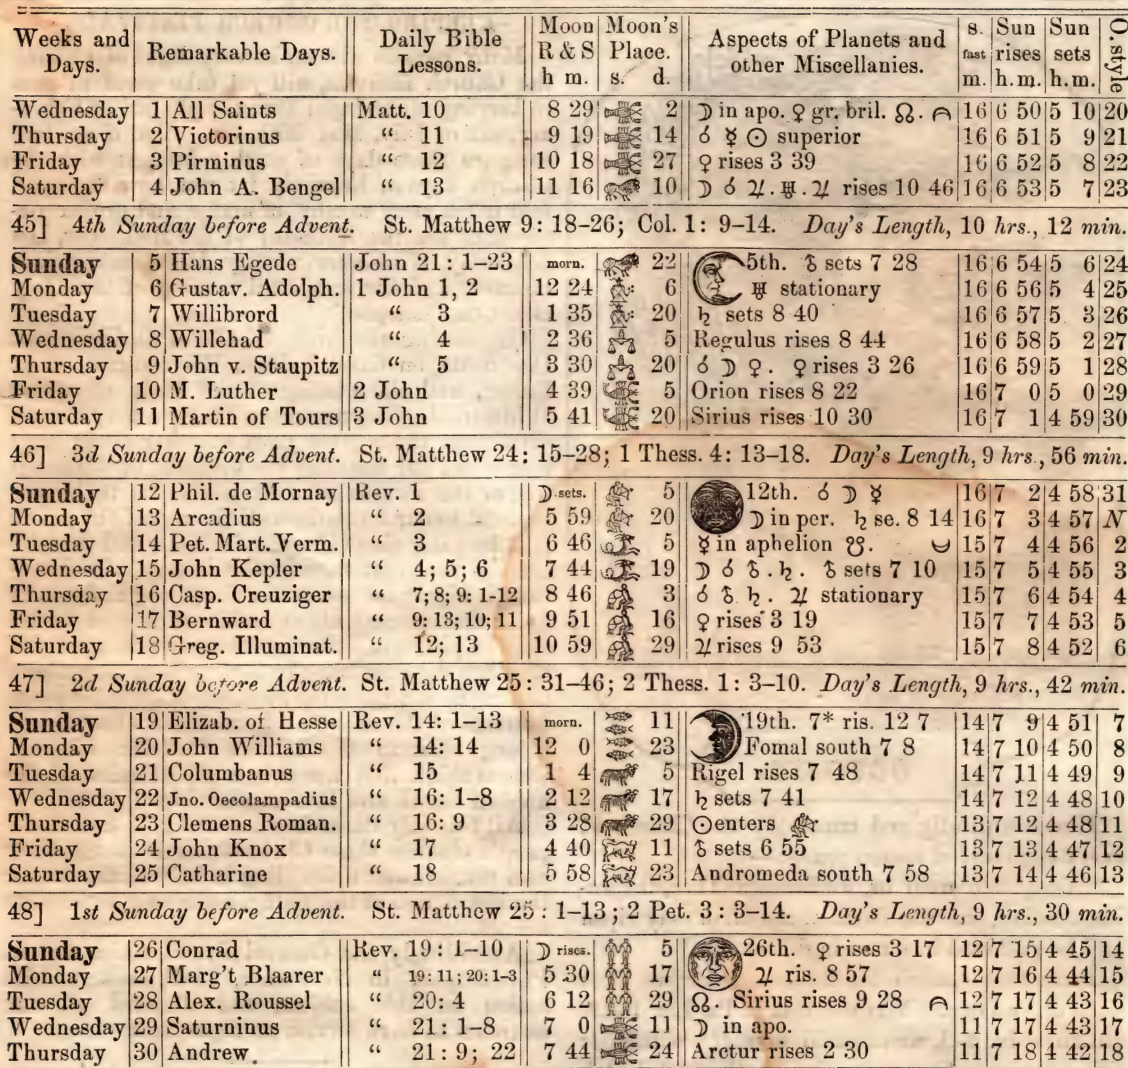 Weeks and Days. Remarkable Days. Daily Bible Lessons. Moon R & S h m. Moon's Place. s. d. Aspects of Planets and other Miscellanies. s. fast m. Sun rises h. m. Sun sets h. m. O. style
Wednesday 1 All Saints Matt. 10 8 29 2 ☽ in apo. ♀ gr. bril. ☊. 16 6 50 5 10 20
Thursday 2 Victorinus " 11 9 19 14 ☌ ☿ ☉ superior 16 6 51 5 9 21
Friday 3 Pirminus " 12 10 18 27 ♀ rises 3 39 16 6 52 5 8 22
Saturday 4 John A. Bengel " 13 11 16 10 ☽ ☌ ♃. ♅. ♃ rises 10 46 16 6 53 5 7 23
45] 4th Sunday before Advent. St. Matthew 9: 18-26; Col. 1: 9-14. Day's Length, 10 hrs., 12 min.
Sunday 5 Hans Egede John 21: 1-23 morn. 22 5th. ♂ sets 7 28 16 6 54 5 6 24
Monday 6 Gustav. Adolph. 1 John 1, 2 12 24 6 ♅ stationary 16 6 56 5 4 25
Tuesday 7 Willibrord " 3 1 35 20 ♄ sets 8 40 16 6 57 5 3 26
Wednesday 8 Willehad " 4 2 36 5 Regulus rises 8 44 16 6 58 5 2 27
Thursday 9 John v. Staupitz " 5 3 30 20 ☌ ☽ ♀. ♀ rises 3 26 16 6 59 5 1 28
Friday 10 M. Luther 2 John 4 39 5 Orion rises 8 22 16 7 0 5 0 29
Saturday 11 Martin of Tours 3 John 5 41 20 Sirius rises 10 30 16 7 1 4 59 30
46] 3d Sunday before Advent. St. Matthew 24: 15-28; 1 Thess. 4: 13-18. Day's Length, 9 hrs., 56 min.
Sunday 12 Phil. de Mornay Rev. 1 ☽ sets. 5 12th. ☌ ☽ ☿ 16 7 2 4 58 31
Monday 13 Arcadius " 2 5 59 20 ☽ in per. ♄ se. 8 14 16 7 3 4 57 N
Tuesday 14 Pet. Mart. Verm. " 3 6 46 5 ☿ in aphelion ☋. 15 7 4 4 56 2
Wednesday 15 John Kepler " 4; 5; 6 7 44 19 ☽ ☌ ♂. ♄. ♂ sets 7 10 15 7 5 4 55 3
Thursday 16 Casp. Creuziger " 7; 8; 9: 1-12 8 46 3 ☌ ♂ ♄. ♃ stationary 15 7 6 4 54 4
Friday 17 Bernward " 9: 13; 10; 11 9 51 16 ♀ rises 3 19 15 7 7 4 53 5
Saturday 18 Greg. Illuminat. " 12; 13 10 59 29 ♃ rises 9 53 15 7 8 4 52 6
47] 2d Sunday before Advent. St. Matthew 25: 31-46; 2 Thess. 1: 3-10. Day's Length, 9 hrs., 42 min.
Sunday 19 Elizab. of Hesse Rev. 14: 1-13 morn. 11 19th. 7* ris. 12 7 14 7 9 4 51 7
Monday 20 John Williams " 14: 14 12 0 23 Fomal south 7 8 14 7 10 4 50 8
Tuesday 21 Columbanus " 15 1 4 5 Rigel rises 7 48 14 7 11 4 49 9
Wednesday 22 Jno. Oecolampadius " 16: 1-8 2 12 17 ♄ sets 7 41 14 7 12 4 48 10
Thursday 23 Clemens Roman. " 16: 9 3 28 29 ☉ enters 13 7 12 4 48 11
Friday 24 John Knox " 17 4 40 11 ♂ sets 6 55 13 7 13 4 47 12
Saturday 25 Catharine " 18 5 58 23 Andromeda south 7 58 13 7 14 4 46 13
48] 1st Sunday before Advent. St. Matthew 25: 1-13; 2 Pet. 3: 3-14. Day's Length, 9 hrs., 30 min.
Sunday 26 Conrad Rev. 19: 1-10 ☽ rises. 5 26th. ♀ rises 3 17 12 7 15 4 45 14
Monday 27 Marg't Blaarer " 19: 11; 20: 1-3 5 30 17 ♃ ris. 8 57 12 7 16 4 44 15
Tuesday 28 Alex. Roussel " 20: 4 6 12 29 ☊. Sirius rises 9 28 12 7 17 4 43 16
Wednesday 29 Saturninus " 21: 1-8 7 0 11 ☽ in apo. 11 7 17 4 43 17
Thursday 30 Andrew. " 21: 9; 22 7 44 24 Arctur rises 2 30 11 7 18 4 42 18